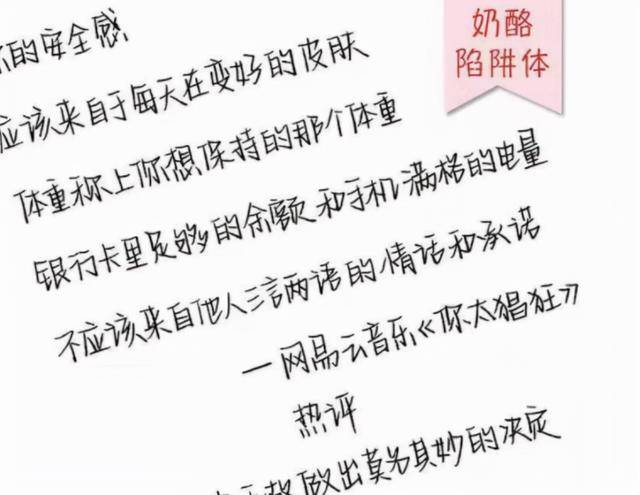 奶酪
陷阱体
你的安全感
应该来自于每天在变好的皮肤
体重称上你想保持的那个体重
银行卡里足够的余额和手机满格的电量
不应该来自他人三言两语的情话和承诺
一网易云音乐《你太猖狂》
热评
做出莫名其妙的决定